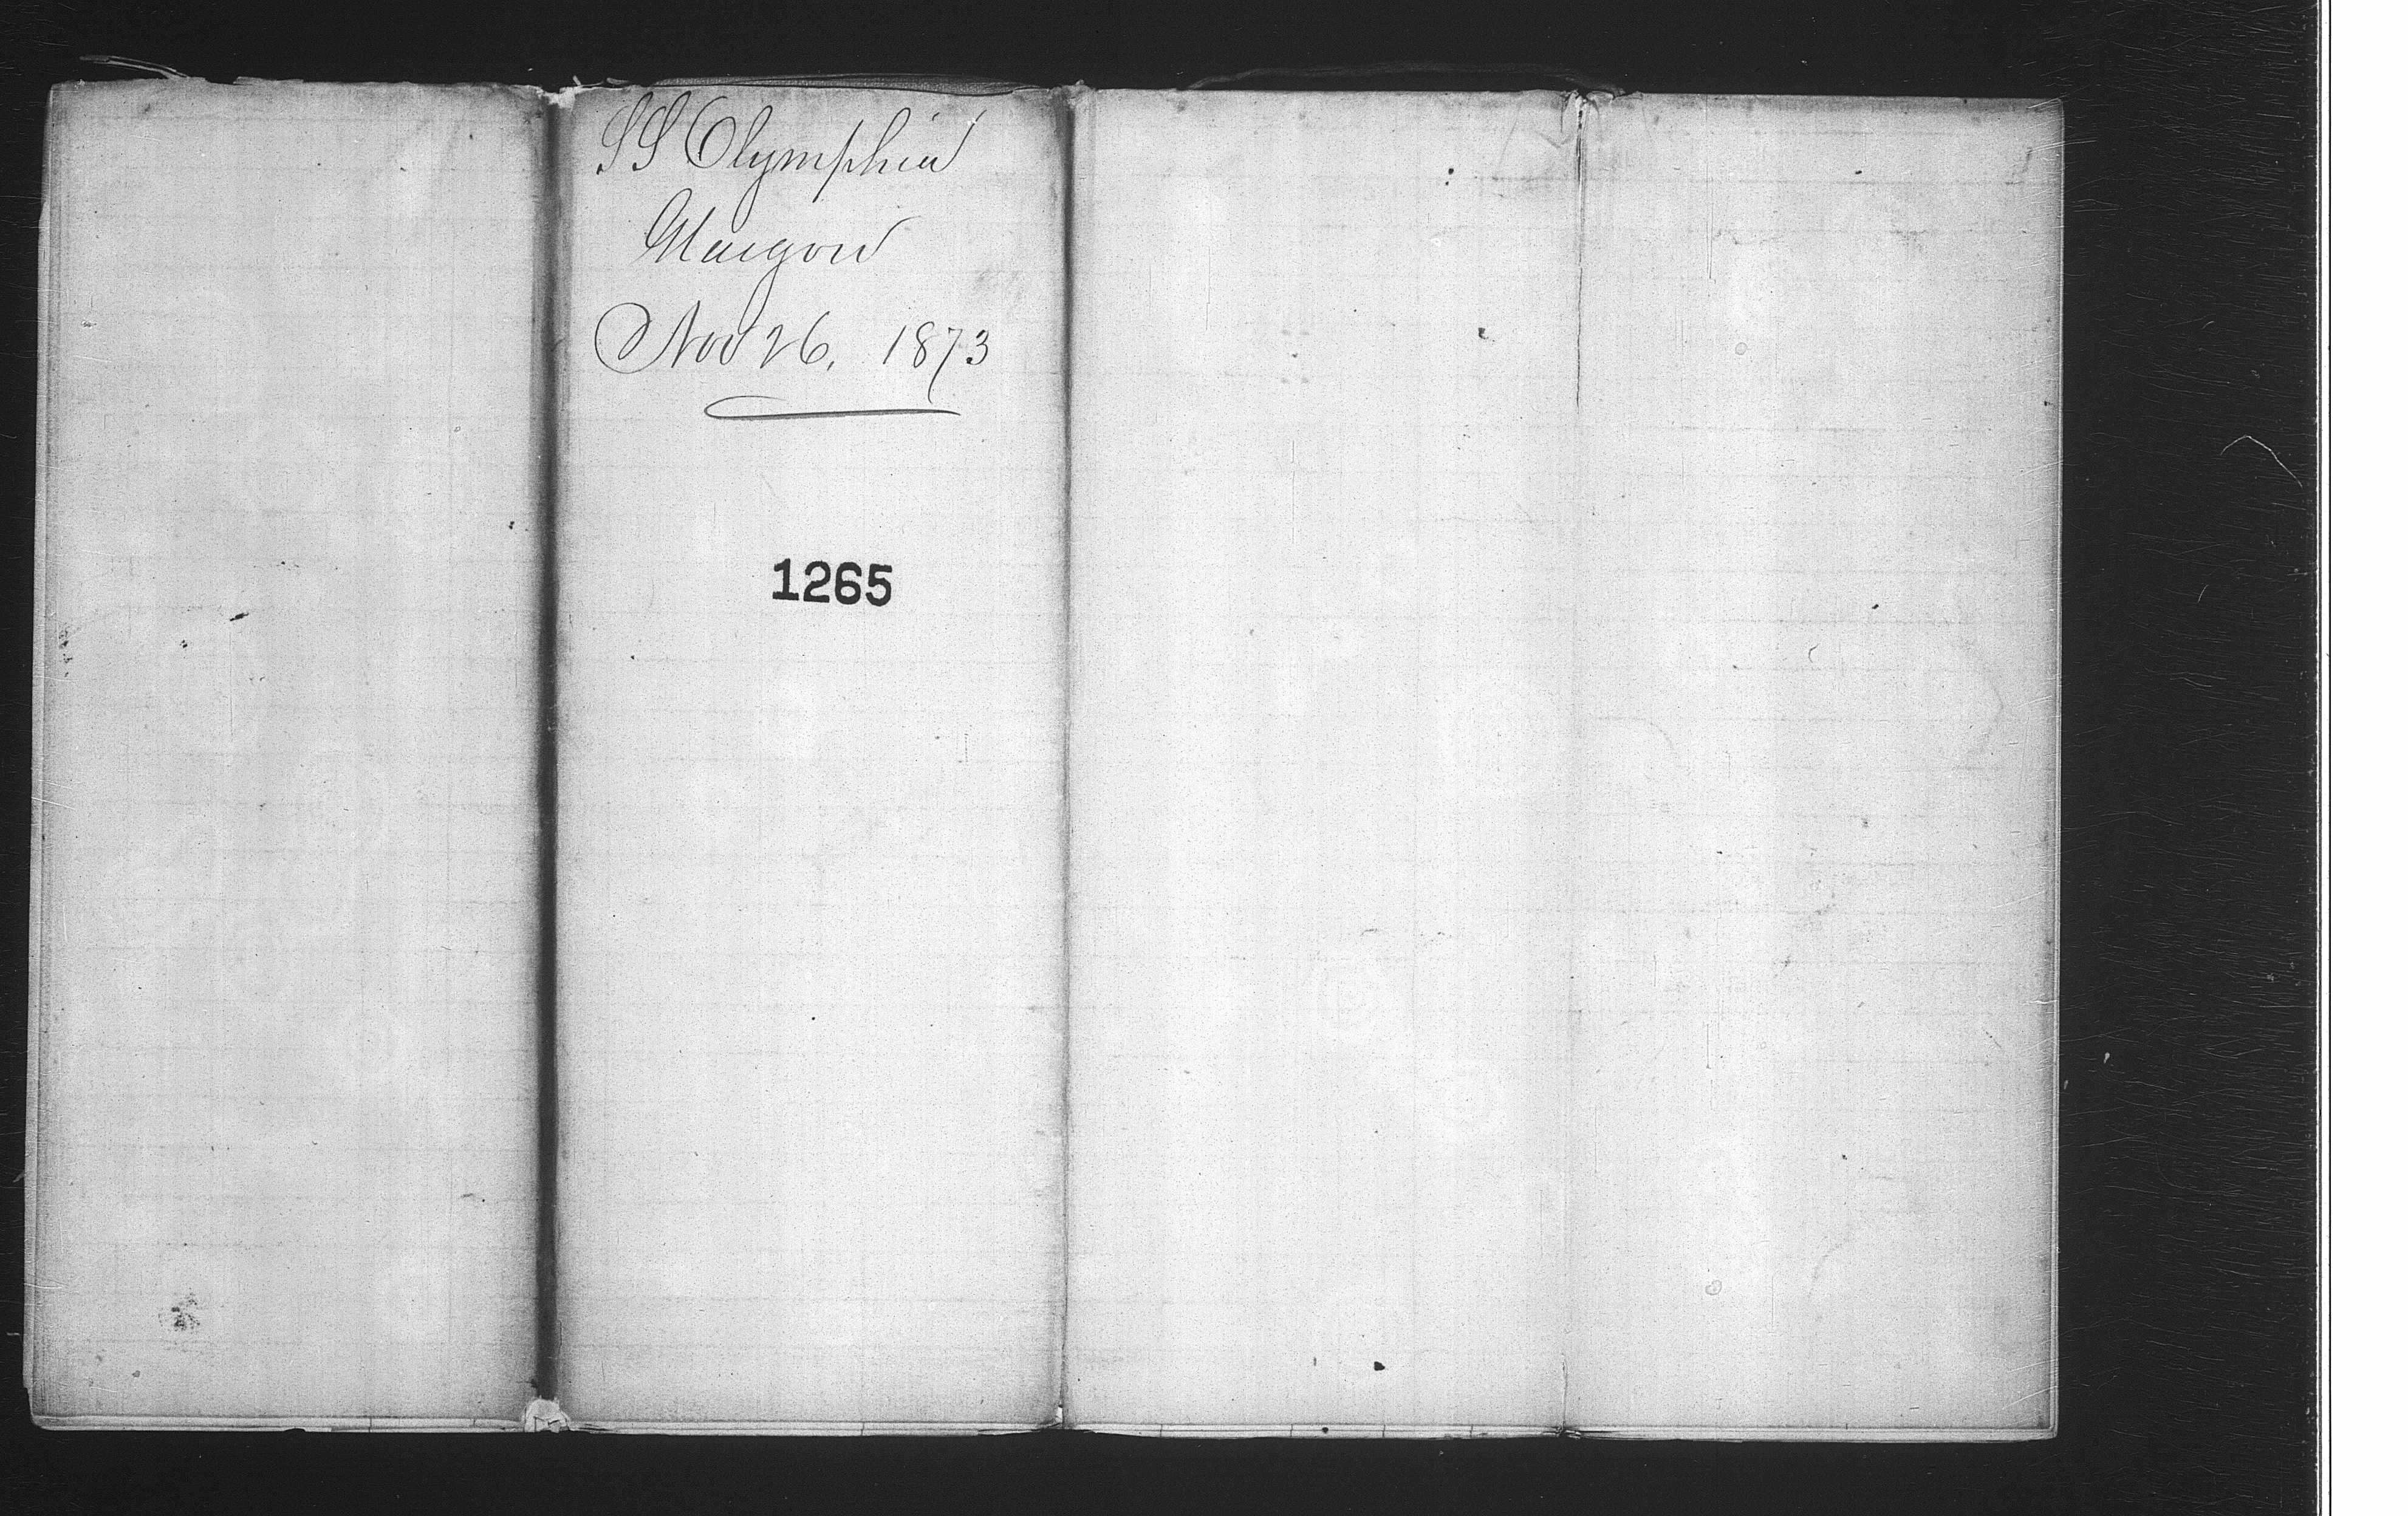 SS Olymphia
Glasgow
Nov 26, 1873
1265